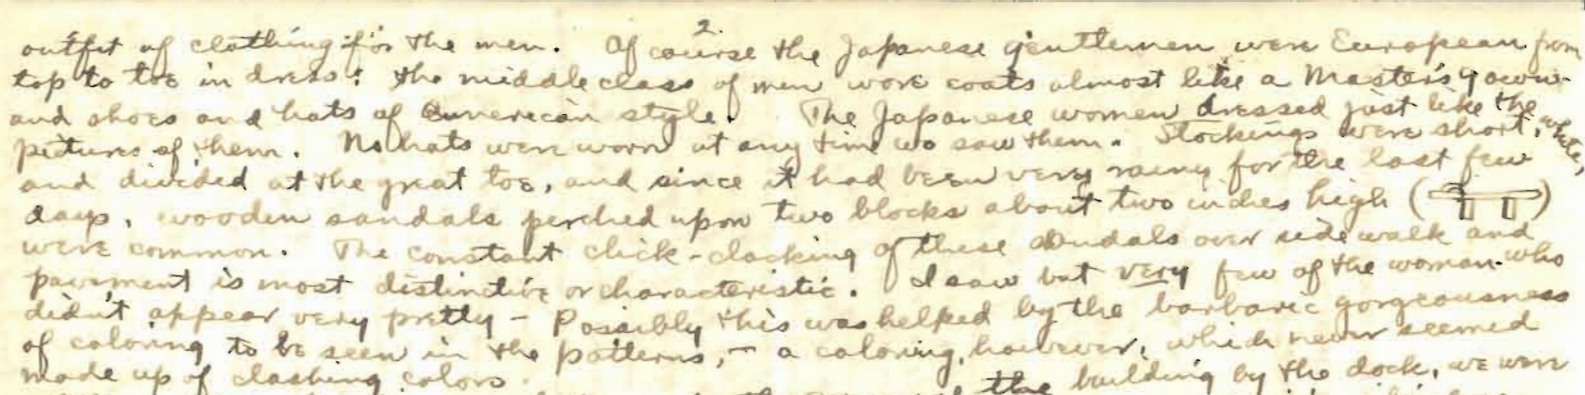 2.
outfit of clothing for the men. Of course the Japanese gentlemen were European from
top to toe in dress; the middle class of men wore coats almost like a Master's gown
and shoes and hats of American style. The Japanese women dressed just like the
pictures of them. No hats were worn at any time we saw them. Stockings were short, white,
and divided at the great toe, and since it had been very rainy for the last few
days, wooden sandals perched upon two blocks about two inches high ( )
were common. The constant click-clacking of these sandals over sidewalk and
pavement is most distinctive or characteristic. I saw but very few of the woman who
didn't appear very pretty - Possibly this was helped by the barbaric gorgeousness
of coloring to be seen in the patterns, - a coloring, however, which never seemed
made up of clashing colors. the building by the dock, we were